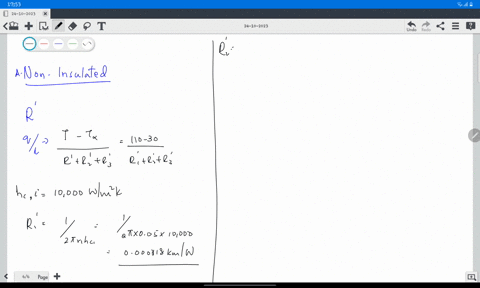 17:53
06-20-2023
06-20-2023
Undo
Redo
A. Non-Insulated
R'
q/L => T - T∝ / R'+R2'+R3' = 110-30 / R1'+R2'+R3'
hc,i = 10,000 W/m²K
R1' = 1/2πrhci = 1/2π×0.05×10,000
= 0.000318 Km/W
R2' =
Page